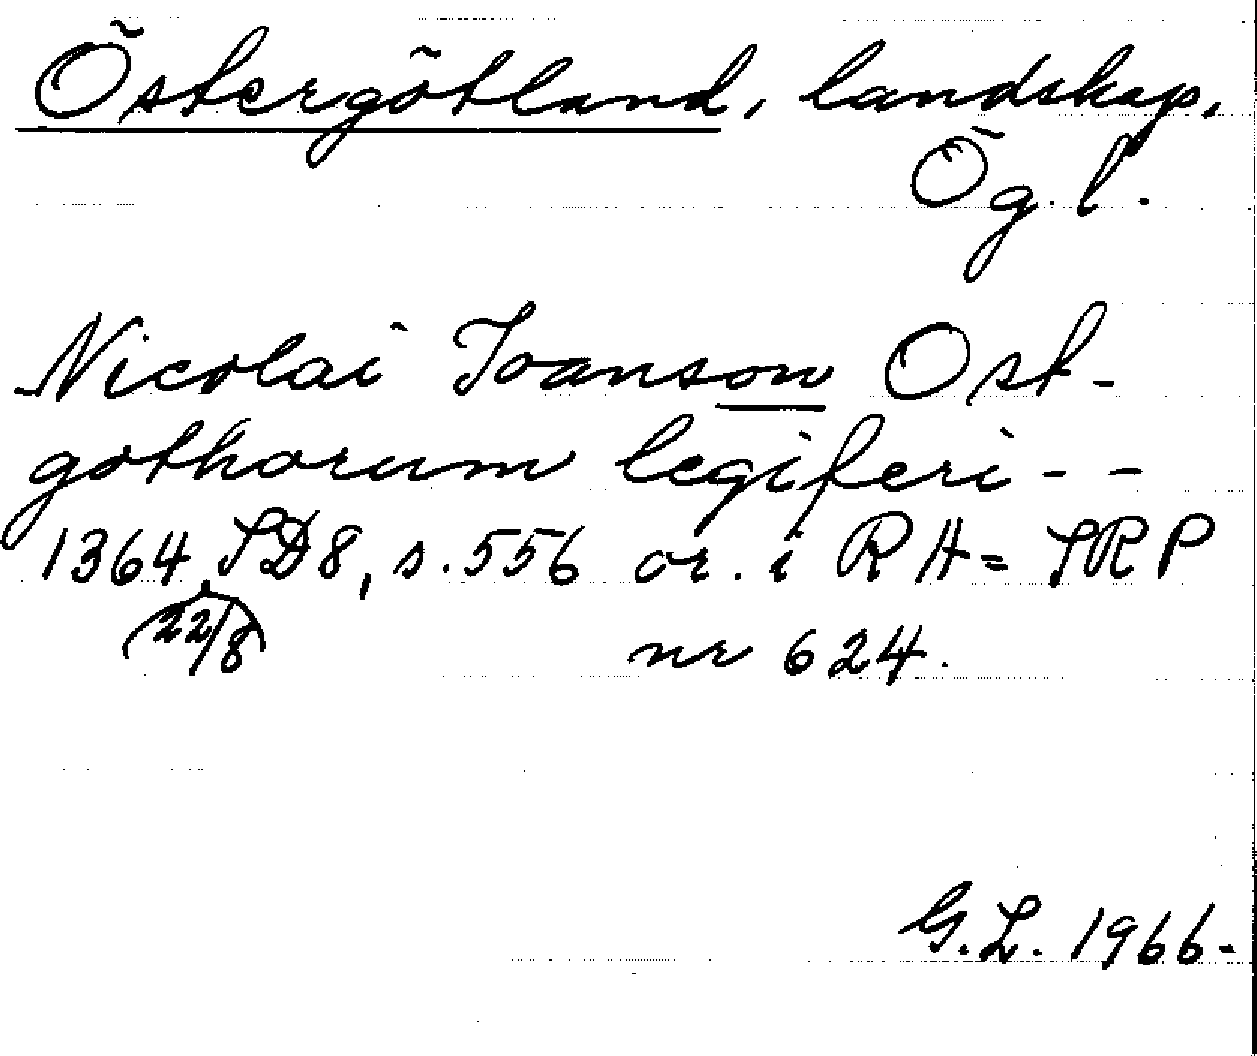 Östergötland, landskap,
Ög. l.
Nicolai Ioanson Ost-
gothorum legiferi - -
1364 22/8, SD8, s. 556 or. i RA = SRP
nr 624.
G.L. 1966.